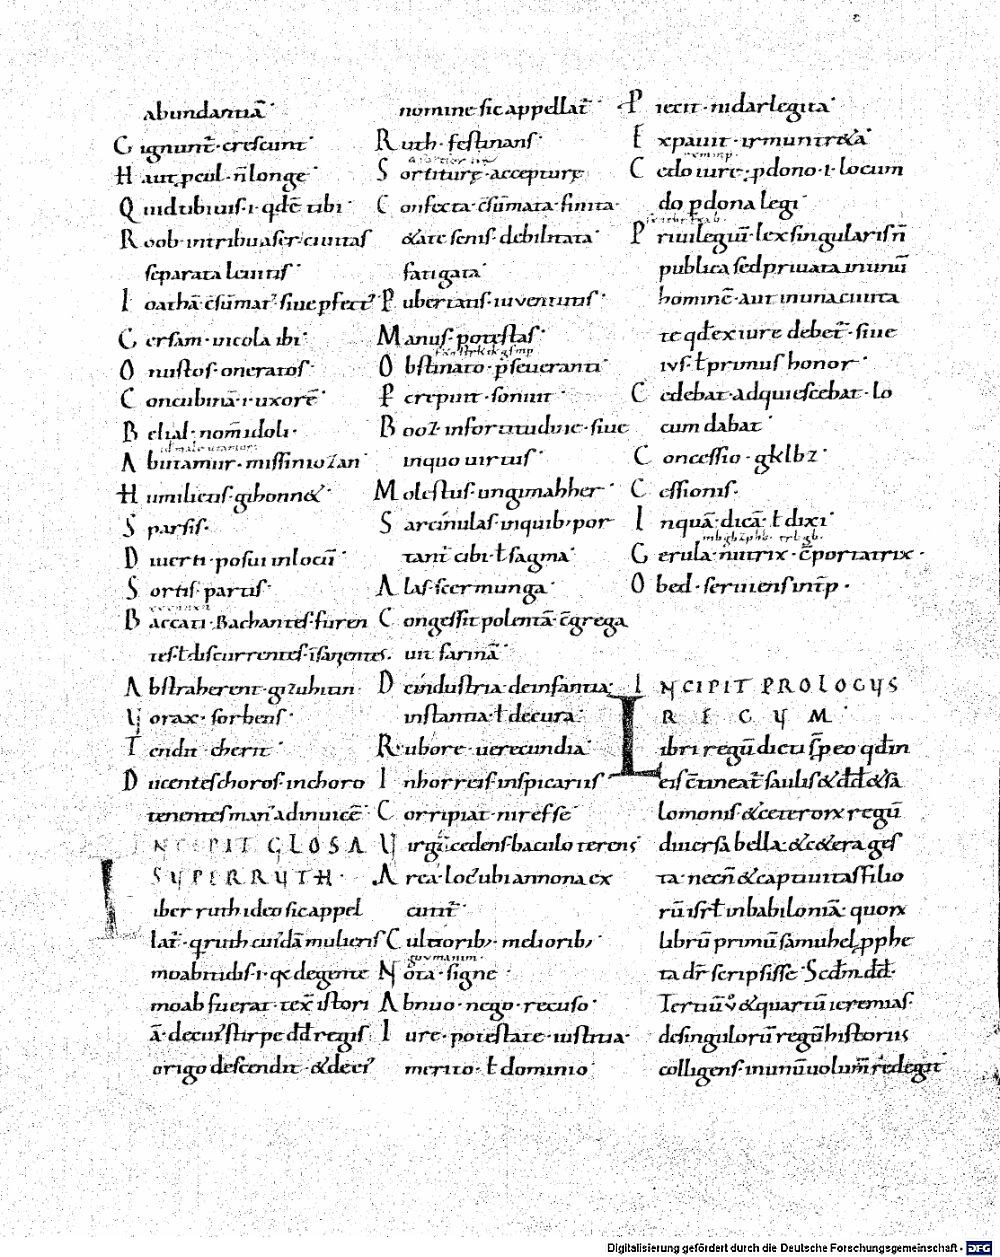 abundantiā·
Gignunt̄·crescunt·
Haut ꝓcul·n̄ longe·
Quid tibi uis·ı·qd̄ē tibi·
Roob·intribu aser·ciuitas
separata leuitis·
Ioathā·c̄sūmat᷒·siue pfect᷒
Gersam·uicola ibi·
Onustos·oneratos·
Concubinā·ı·uxorē·
Belial·nom̄ idoli·
id male utamur·
Abutamur·missiniozan·
Humiliens·gihonn&·
Sparsis·
Diuerti·posui inlocū·
Sortis·partis·
Baccati·Bachantes·furen
tes·ł discurrentes·īsanientes.
Abstraherent·gizuhitin·
Uorax·sorbens·
Tendit·cherit·
Ducentes choros·inchoro
tenentes man᷒ adinuicē·
INCIPIT GLOSA
SUPER RUTH·
Liber ruth ideo sic appel
lat̄·q ruth cuidā mulieris
moabitidis·ı·q̨ de gente
moab fuerat·tex̄ istori
ā·de cui᷒ stirpe dd̄ regis
origo descendit·&dei᷒
nomine sic appellat̄·
Ruth·festinans·
Sortiturę·accepturę·
Confecta·c̄sūmata·finita·
&ate senis·debilitata·
fatigata·
Pubertatis·iuuentutis·
Manus·potestas·
Obstinato·pseueranti·
Crepuit·sonuit·
Booz·infortitudine·siue
inquo uirtus·
Molestus·ungimahher·
Sarcinulas·inquib;por
tant̄ cibi·ł sagma·
Alas·scermunga·
Congessit polentā·c̄grega
uit farinā·
De industria·deinfantia·
instantia·ł decura·
Rubore·uerecundia·
Inhorreis·inspicariis·
Corripiat·nirefse·
Uirgū·cedens·baculo terens·
Area·loc᷒ ubi annona ex
cutit̄·
Cultiorib;·meliorib;
Nota·signe·
Abnuo·nego·recuso·
Iure·potestate·iustitia·
merito·ł dominio·
Piecit·nidarlegita·
Expauit·irmuntr&a·
Cedo iure·;pdono·ı·locum
do pdona legi·
Priuilegiū·lex singularis n̄
publica sed priuata in unū
hominē·aut in una ciuita
te qd̄ ex iure debet̄·siue
ius·ł primus honor·
Cedebat·adquiescebat·lo
cum dabat·
Concessio·gklbz·
Cessionis·
Inquā·dicā·ł dixi·
Gerula·nutrix·c̄portatrix·
Obed·seruiens int̄p·
INCIPIT PROLOGUS
REGUM·
Libri regū dicti s̄ eo qd̄ in
eis c̄tineat̄ saulis & dd̄ & sa
lomonis·&ceterorx regū
diuersa bella·&c&era ges
ta·necn̄ &captiuitas filio
rū isrł inbabiloniā·quorx
librū primū samuhel ppphe
ta dr̄ scripsisse·Scd̄m dd̄·
Tertiū ů &quartū ieremias·
de singulorū regū historiis
colligens·in unū uolum̄ redegit·